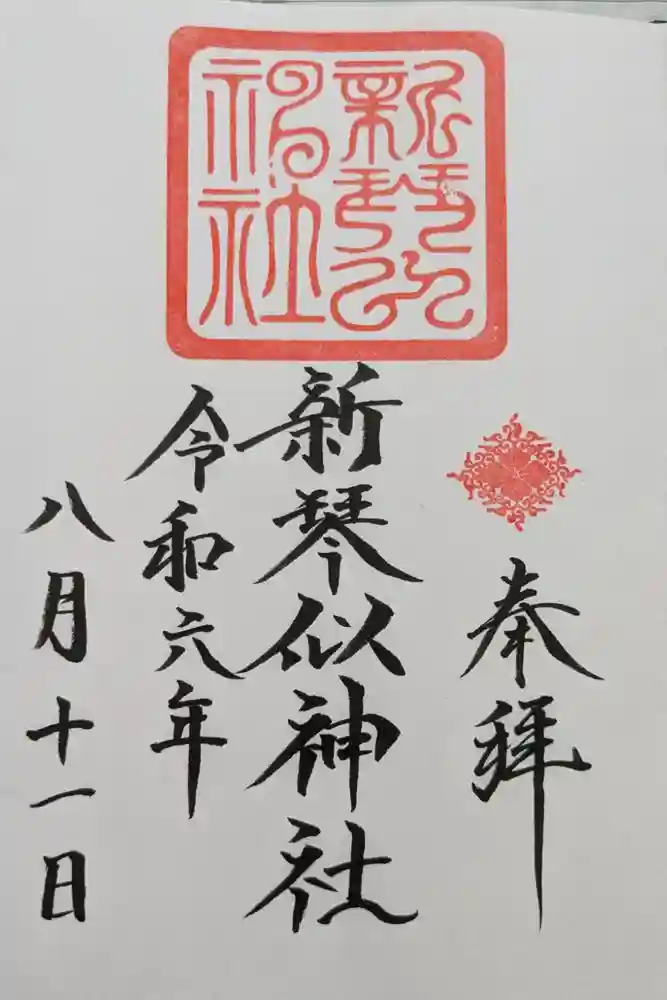 奉拝
新琴似神社
令和六年
八月十一日
新琴似
神社